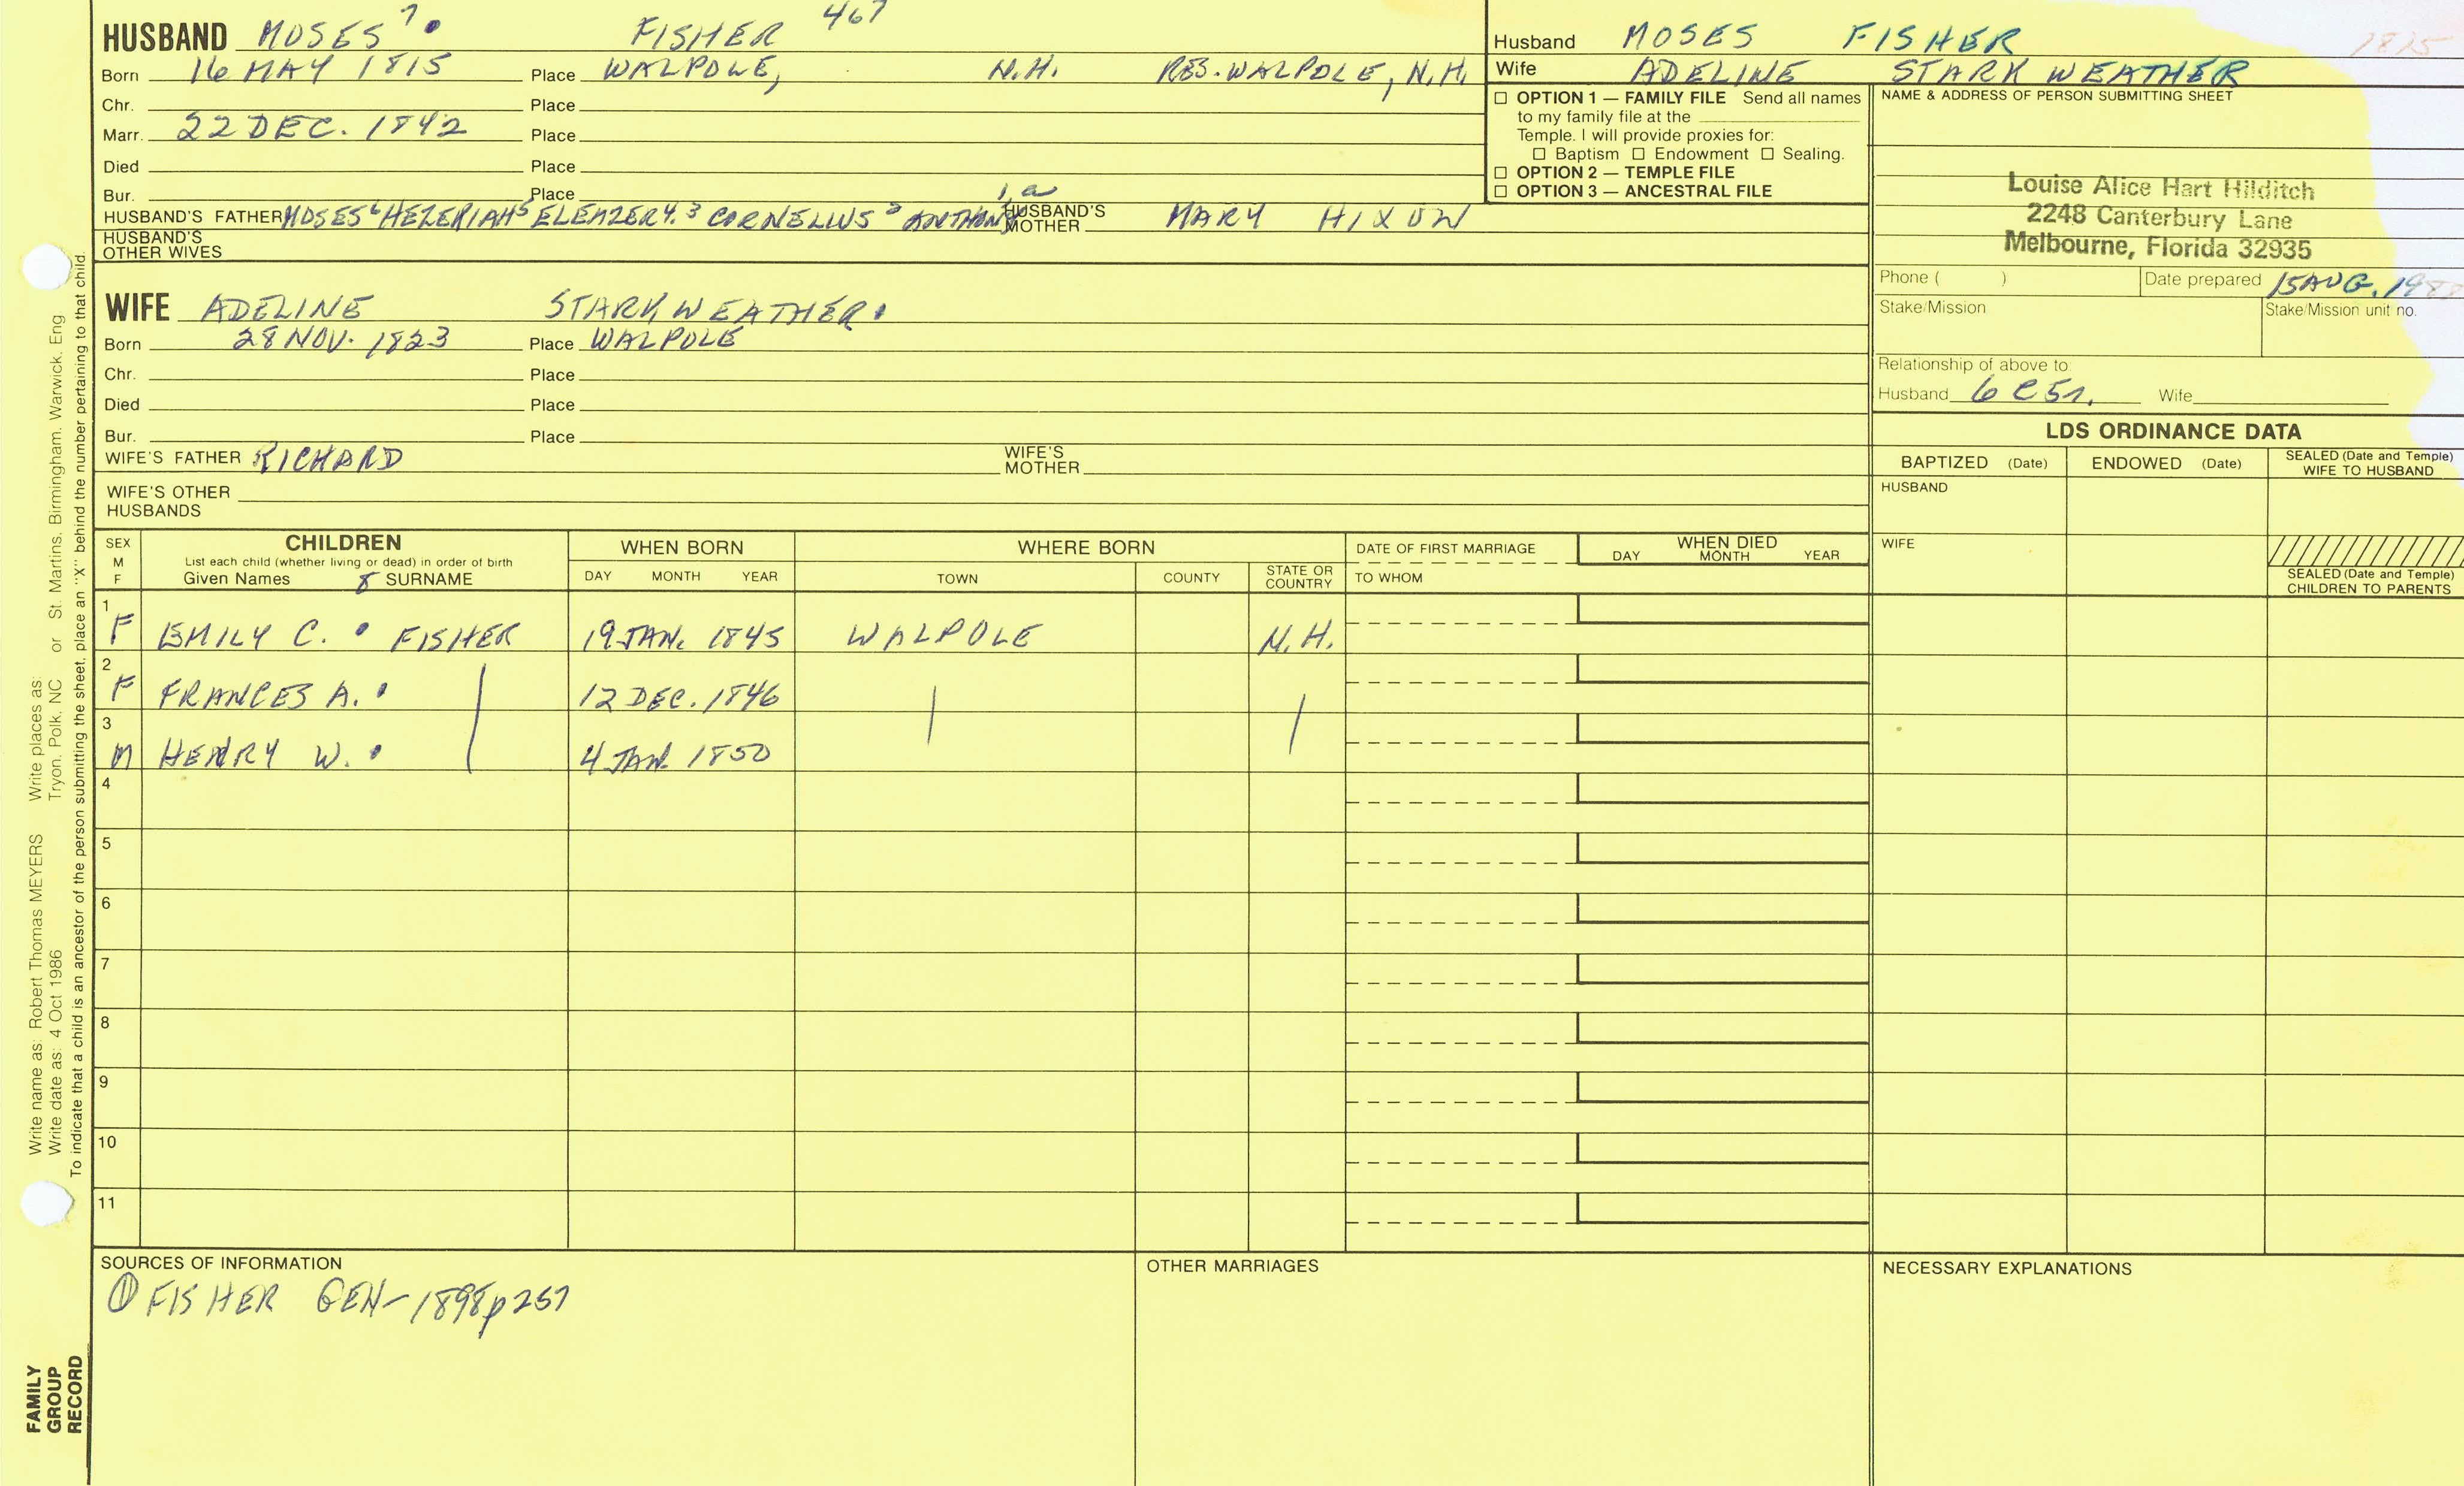 HUSBAND MOSES 7. FISHER 467
Born 16 MAY 1815 Place WALPOLE, N.H. RES. WALPOLE, N.H.
Chr. Place
Marr. 22 DEC. 1842 Place
Died Place
Bur. Place
HUSBAND'S FATHER MOSES 6 HEZEKIAH 5 ELEAZER 4. 3 CORNELIUS 2 ANTHONY 1, a HUSBAND'S MOTHER MARY HIXON
HUSBAND'S OTHER WIVES
Husband MOSES FISHER 1815
Wife ADELINE STARK WEATHER
☐ OPTION 1 — FAMILY FILE Send all names
to my family file at the
Temple. I will provide proxies for:
☐ Baptism ☐ Endowment ☐ Sealing.
☐ OPTION 2 — TEMPLE FILE
☐ OPTION 3 — ANCESTRAL FILE
NAME & ADDRESS OF PERSON SUBMITTING SHEET
Louise Alice Hart Hilditch
2248 Canterbury Lane
Melbourne, Florida 32935
Phone ( ) Date prepared 15 AUG. 1988
Stake/Mission Stake/Mission unit no.
Relationship of above to
Husband 6 C 5 r. Wife
WIFE ADELINE STARK WEATHER.
Born 28 NOV. 1823 Place WALPOLE
Chr. Place
Died Place
Bur. Place
WIFE'S FATHER RICHARD WIFE'S MOTHER
WIFE'S OTHER HUSBANDS
LDS ORDINANCE DATA
BAPTIZED (Date) ENDOWED (Date) SEALED (Date and Temple) WIFE TO HUSBAND
HUSBAND
WIFE
SEALED (Date and Temple) CHILDREN TO PARENTS
SEX M F CHILDREN WHEN BORN WHERE BORN DATE OF FIRST MARRIAGE WHEN DIED
List each child (whether living or dead) in order of birth
Given Names 8 SURNAME DAY MONTH YEAR TOWN COUNTY STATE OR COUNTRY TO WHOM DAY MONTH YEAR
1 F EMILY C. • FISHER 19 JAN. 1845 WALPOLE N.H.
2 F FRANCES A. • 12 DEC. 1846
3 M HENRY W. • 4 JAN. 1850
4
5
6
7
8
9
10
11
SOURCES OF INFORMATION
① FISHER GEN- 1898 p 257
OTHER MARRIAGES
NECESSARY EXPLANATIONS
Write name as: Robert Thomas MEYERS Write places as:
Write date as: 4 Oct 1986 Tryon, Polk, NC or St. Martins, Birmingham, Warwick, Eng
To indicate that a child is an ancestor of the person submitting the sheet, place an "X" behind the number pertaining to that child.
FAMILY
GROUP
RECORD